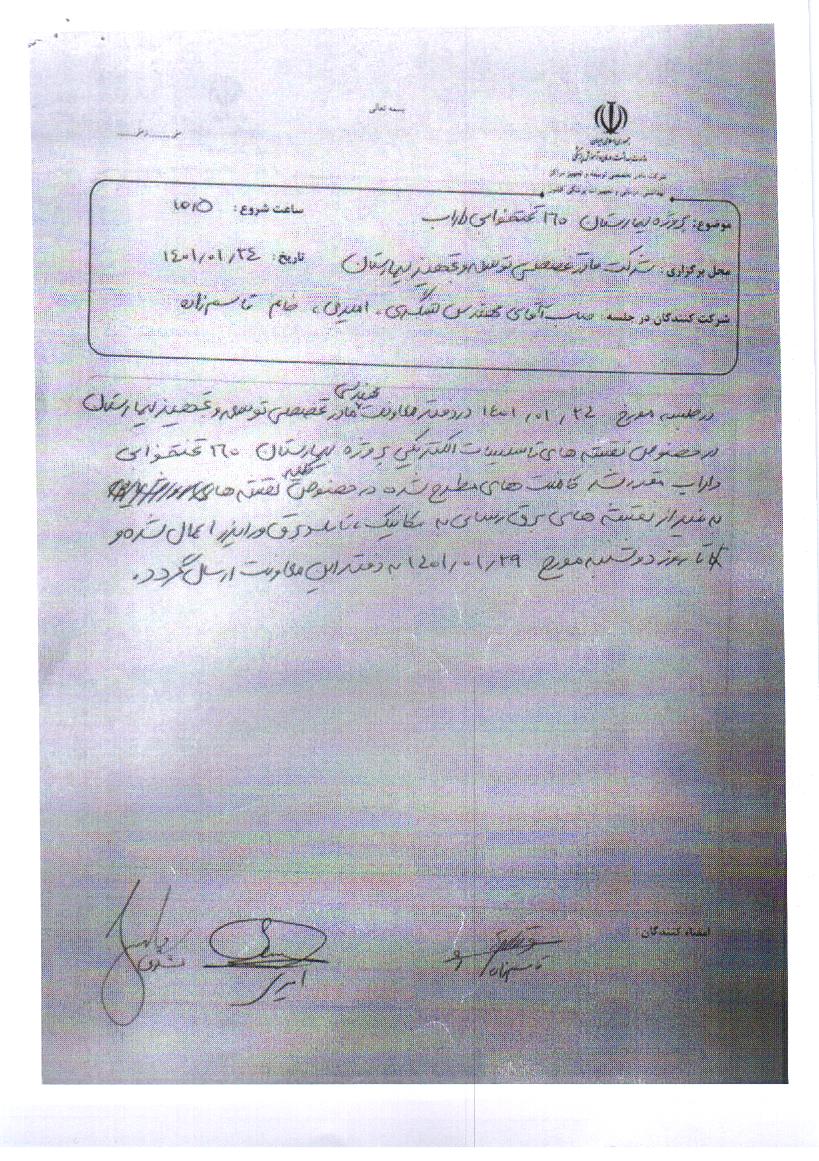 بسمه تعالی
جمهوری اسلامی ایران
وزارت بهداشت، درمان و آموزش پزشکی
شرکت مادر تخصصی توسعه و تجهیز مراکز
بهداشتی درمانی و تجهیزات پزشکی کشور
موضوع: پروژه بیمارستان ۱۶۰ تختخوابی داراب ساعت شروع: ۱۰:۱۵
محل برگزاری: شرکت مادر تخصصی توسعه و تجهیز بیمارستان تاریخ: ۱۴۰۱/۰۱/۲۴
شرکت کنندگان در جلسه: جناب آقای مهندس لشگری، امیری، خانم قاسم‌زاده
در جلسه مورخ ۱۴۰۱/۰۱/۲۴ در دفتر معاونت مهندسی مادر تخصصی توسعه و تجهیز بیمارستان
در خصوص نقشه های تاسیسات الکتریکی پروژه بیمارستان ۱۶۰ تختخوابی
داراب مقرر شد کامنت های مطرح شده در خصوص کلیه نقشه های
به غیر از نقشه های برق رسانی به مکانیک، تابلو برق و رایزر اعمال شده و
تا روز دوشنبه مورخ ۱۴۰۱/۰۱/۲۹ به دفتر این معاونت ارسال گردد.
امضاء کنندگان:
قاسم‌زاده
امیری
لشگری